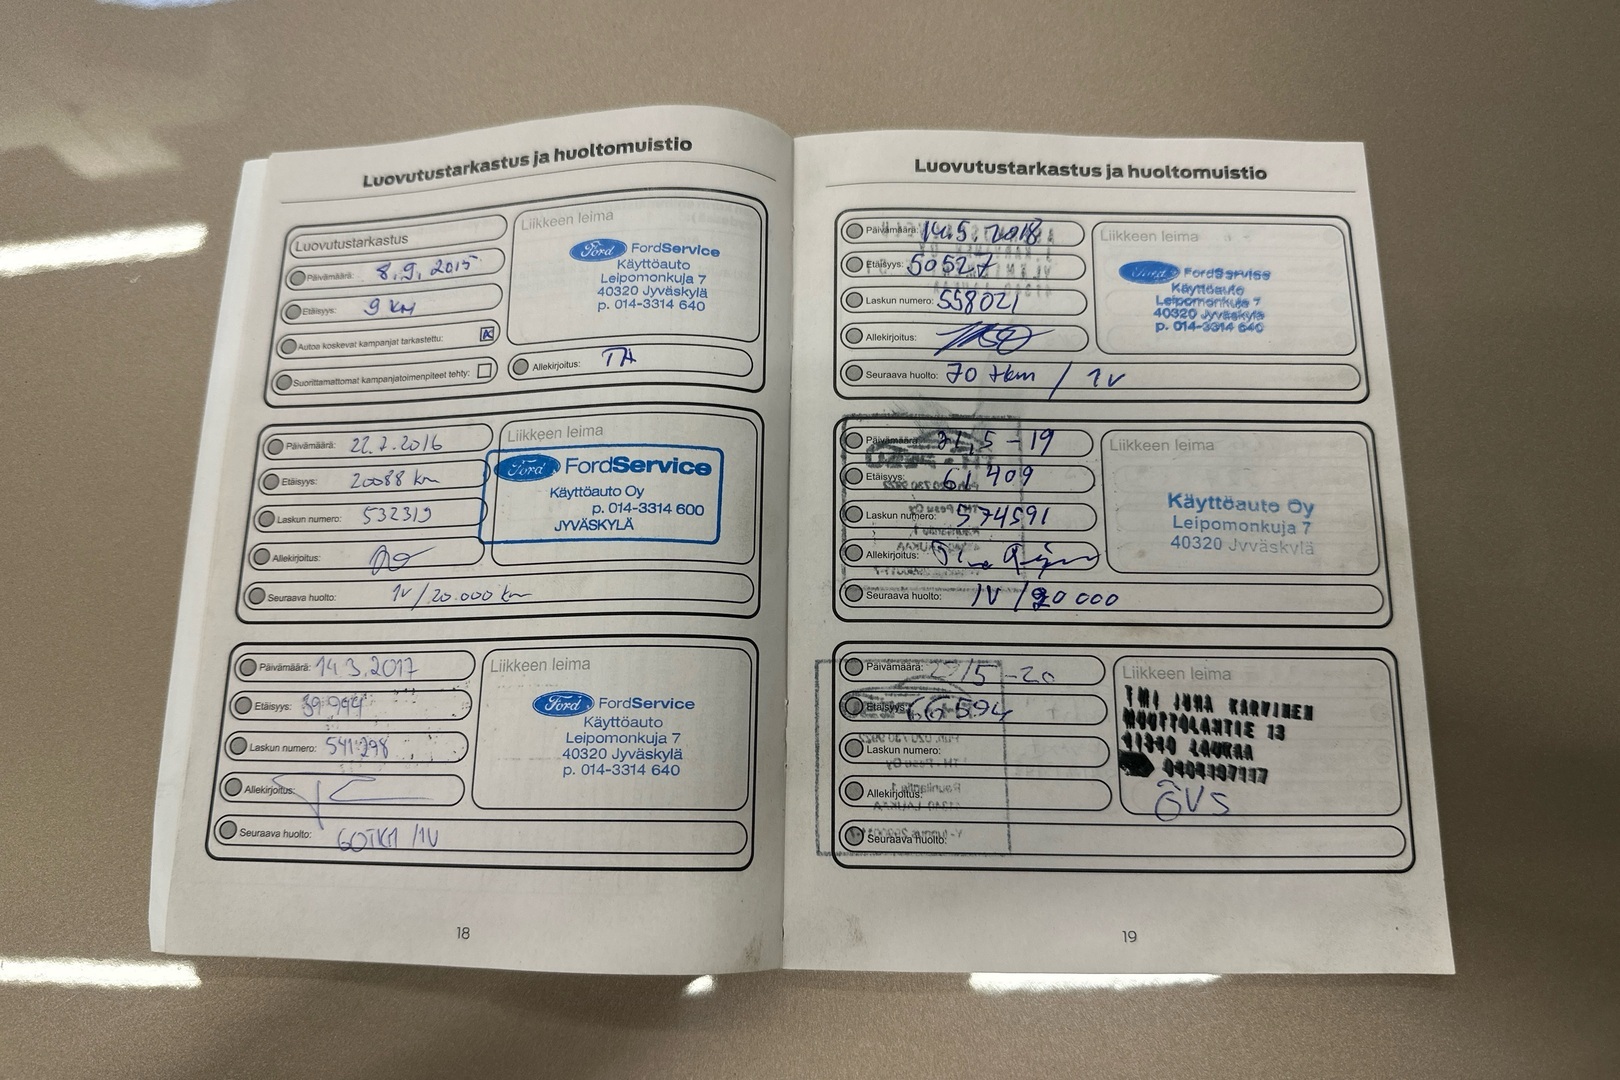 Luovutustarkastus ja huoltomuistio
Luovutustarkastus
Päivämäärä: 8.9.2015
Etäisyys: 9 km
Autoa koskevat kampanjat tarkastettu: X
Suorittamattomat kampanjatoimenpiteet tehty:
Liikkeen leima
Ford FordService
Käyttöauto
Leipomonkuja 7
40320 Jyväskylä
p. 014-3314 640
Allekirjoitus: TA
Päivämäärä: 22.7.2016
Etäisyys: 20088 km
Laskun numero: 532319
Allekirjoitus:
Seuraava huolto: 1V/20.000 km
Liikkeen leima
Ford FordService
Käyttöauto Oy
p. 014-3314 600
JYVÄSKYLÄ
Päivämäärä: 14.3.2017
Etäisyys: 39 944
Laskun numero: 541298
Allekirjoitus:
Seuraava huolto: 60TKM /1V
Liikkeen leima
Ford FordService
Käyttöauto
Leipomonkuja 7
40320 Jyväskylä
p. 014-3314 640
18
Luovutustarkastus ja huoltomuistio
Päivämäärä: 14.5.2018
Etäisyys: 50527
Laskun numero: 558021
Allekirjoitus:
Seuraava huolto: 70 tkm / 1v
Liikkeen leima
Ford FordService
Käyttöauto
Leipomonkuja 7
40320 Jyväskylä
p. 014-3314 640
Päivämäärä: 21,5-19
Etäisyys: 61 409
Laskun numero: 574591
Allekirjoitus:
Seuraava huolto: 1V /20 000
Liikkeen leima
Käyttöauto Oy
Leipomonkuja 7
40320 Jyväskylä
Päivämäärä: /5-20
Etäisyys: 66594
Laskun numero:
Allekirjoitus:
Seuraava huolto:
Liikkeen leima
TMI JUHA KARVINEN
MUUTTOLANTIE 13
41340 LAUKAA
0404197117
ÖVS
19